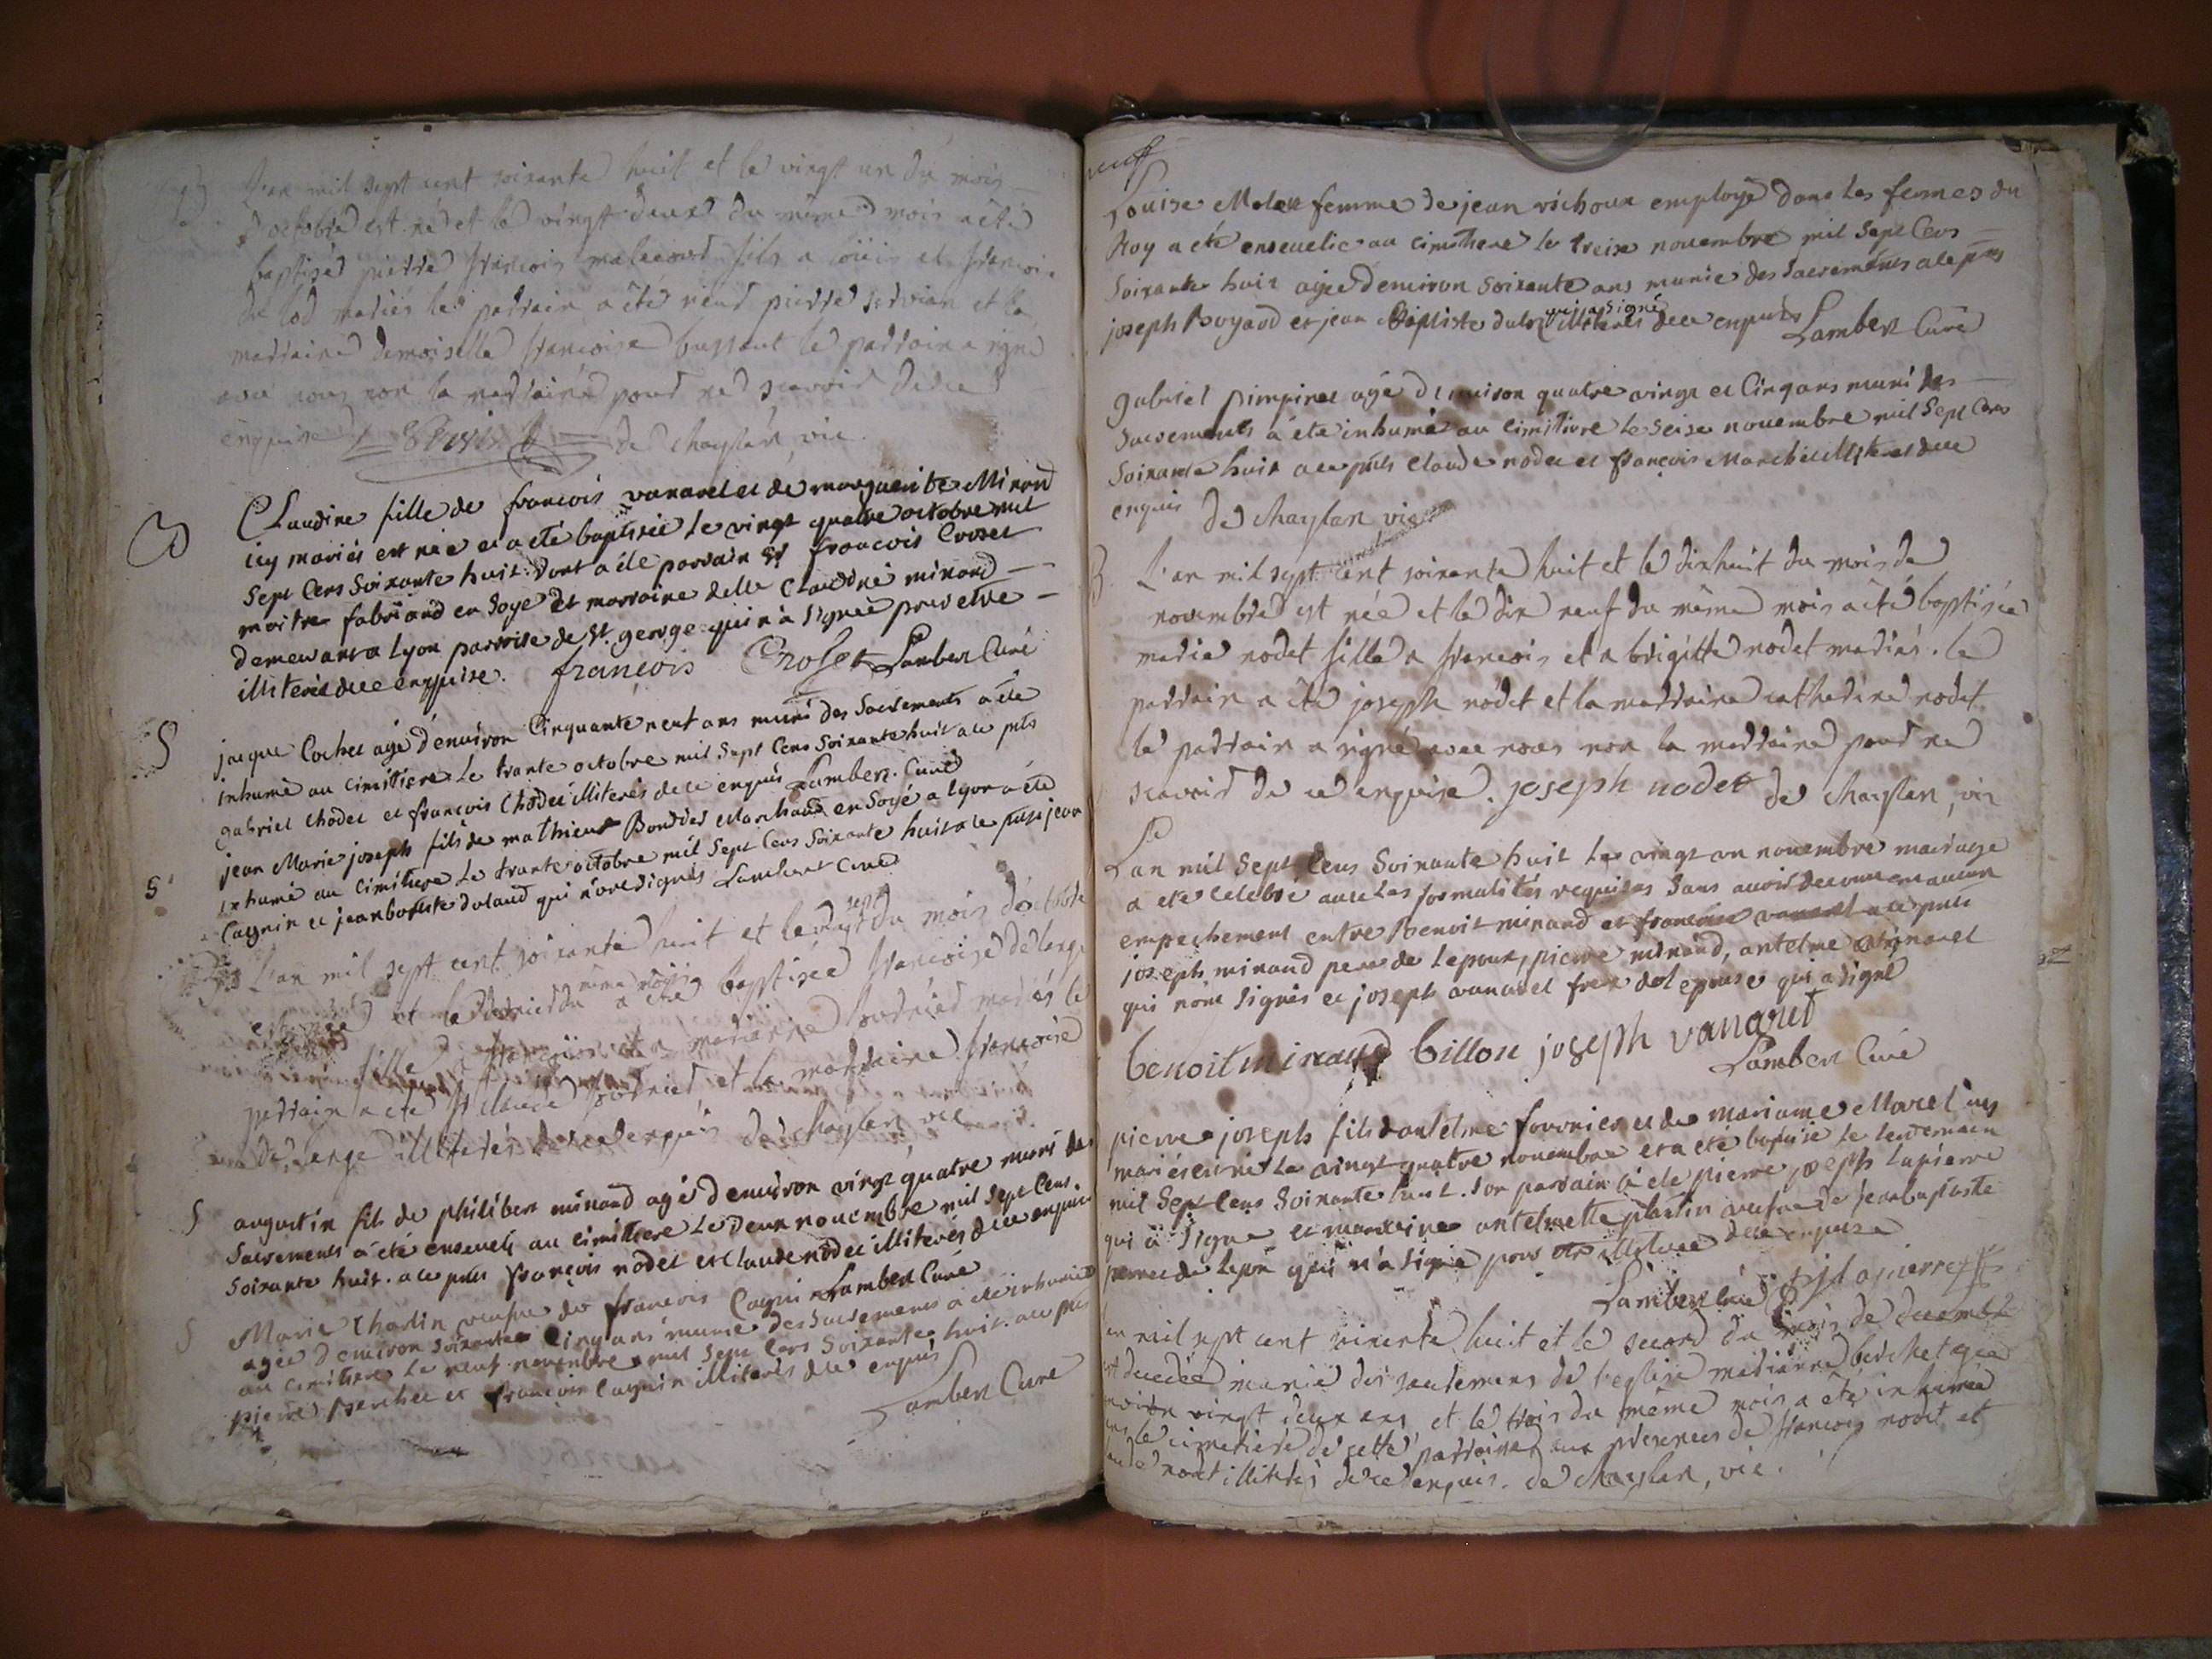 L'an mil sept cent soixante huit et le vingt un du mois
d'octobre est né et le vingt deux du même mois a été
baptisé pierre françois malecourt fils a loüis et françoise
de lod mariés le parrain a été sieur pierre et la
marraine demoiselle françoise bussaut le parrain a signé
avec nous non la marraine pour ne scavoir de ce
enquise de Chaylan, vic.
B
Claudine fille de françois vanarel et de marguerite Minand
icy mariés est née et a été baptisée le vingt quatre octobre mil
Sept Cens Soixante huit. dont a été parrain Sr françois Croset
maitre fabriand en Soye et marraine delle Claudine minand
demeurans a Lyon parroise de St. george qui n'a Signée pour etre
illiterée de ce enquise. françois Croset Lambert Curé
S
jacque Cochet agé d'environ Cinquante neuf ans muni des Sacrements a été
inhumé au Cimitiere le trante octobre mil Sept Cens Soixante huit a ce pnts
gabriel Chodet et françois Chodet illiterés de ce enquis Lambert. Curé
S
jean Marie joseph fils de mathieu Bondet Marchand en Soye a Lyon a été
inhumé au Cimitiere le trante octobre mil Sept Cens Soixante huit a ce pnts jean
Cagnin et jean baptiste dulaud qui n'ont signés Lambert Curé
L'an mil sept cent soixante huit et le vingt sept du mois d'octobre
est née et le du même mois a été baptisée françoise delenge
fille a françois et a marianne fournier mariés le
parrain a été claude fournier et la marraine françoise
delenge illiterés de ce enquis de Chaylan vic
S
augustin fils de philibert minand agé d'environ vingt quatre muni des
Sacrements a été enseveli au cimitiere le Deux novembre mil Sept Cens.
Soixante huit. a ce pnts françois nodet et claude nodet illiterés de ce enquis
Lambert Curé
S
Marie Charlin veufve de françois Cagnin
agée d'environ soixante Cinq ans munie des Sacrements a été inhumée
au cimitiere le neuf novembre mil Sept Cens Soixante huit. a ce pnts
pierre perchet et françois Cagnin illiterés de ce enquis
Lambert Curé
neuf
Louise Molen femme de jean vichoux employé dans les fermes du
Roy a été ensevelie au cimitiere le treize novembre mil Sept Cens
Soixante huit agée d'environ Soixante ans munie des Sacrements a ce pnts
joseph Boyard et jean Baptiste dulo qui a signé illiterés de ce enquis
Lambert Curé
gabriel pimpinet agé d'environ quatre vingt et Cinq ans muni des
Sacrements a été inhumé au Cimitiere le Seize novembre mil Sept Cens
Soixante huit a ce pnts Claude nodet et françois Marchet illiterés de ce
enquis de Chaylan vic
B
L'an mil sept cent soixante huit et le dix huit du mois de
novembre est née et le dix neuf du même mois a été baptisée
marie nodet fille a françois et a brigitte nodet mariés. le
parrain a été joseph nodet et la marraine catherine nodet
le parrain a signé avec nous non la marraine pour ne
scavoir de ce enquise. joseph nodet de Chaylan, vic
L'an mil Sept Cens Soixante huit le vingt un novembre mariage
a été Celebré avec les formalités requises Sans avoir decouvert aucun
empechement entre Benoit minand et françoise vanarel a ce pnts
joseph minand pere de lepoux, pierre minand, antelme
qui n'ont Signés et joseph vanarel frere de l epouse qui a signé
benoit minaud billon joseph vanaret
Lambert Curé
pierre joseph fils dantelme fournier et de mariame Morel icy
mariés est né le vingt quatre novembre et a été baptisé le lendemain
mil Sept Cens Soixante huit. Son parrain a été pierre joseph Lapierre
qui a Signé et marraine antelmette plantin veufve de jean baptiste
qui n'a Signé pour etre illiterée de ce enquise
Lambert Curé p j lapierre
an mil sept cent soixante huit et le second du mois de decembre
est decedée munie des sacremens de l'eglise marianne berchet agée
environ vingt deux ans, et le trois du même mois a été inhumée
dans le cimetiere de cette parroisse aux presences de françois nodet et
claude nodet illiterés de ce enquis. de Chaylan, vic.